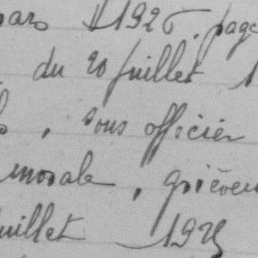 mars 1926, page
du 20 juillet 1
, sous officier
morale, griève
juillet 192